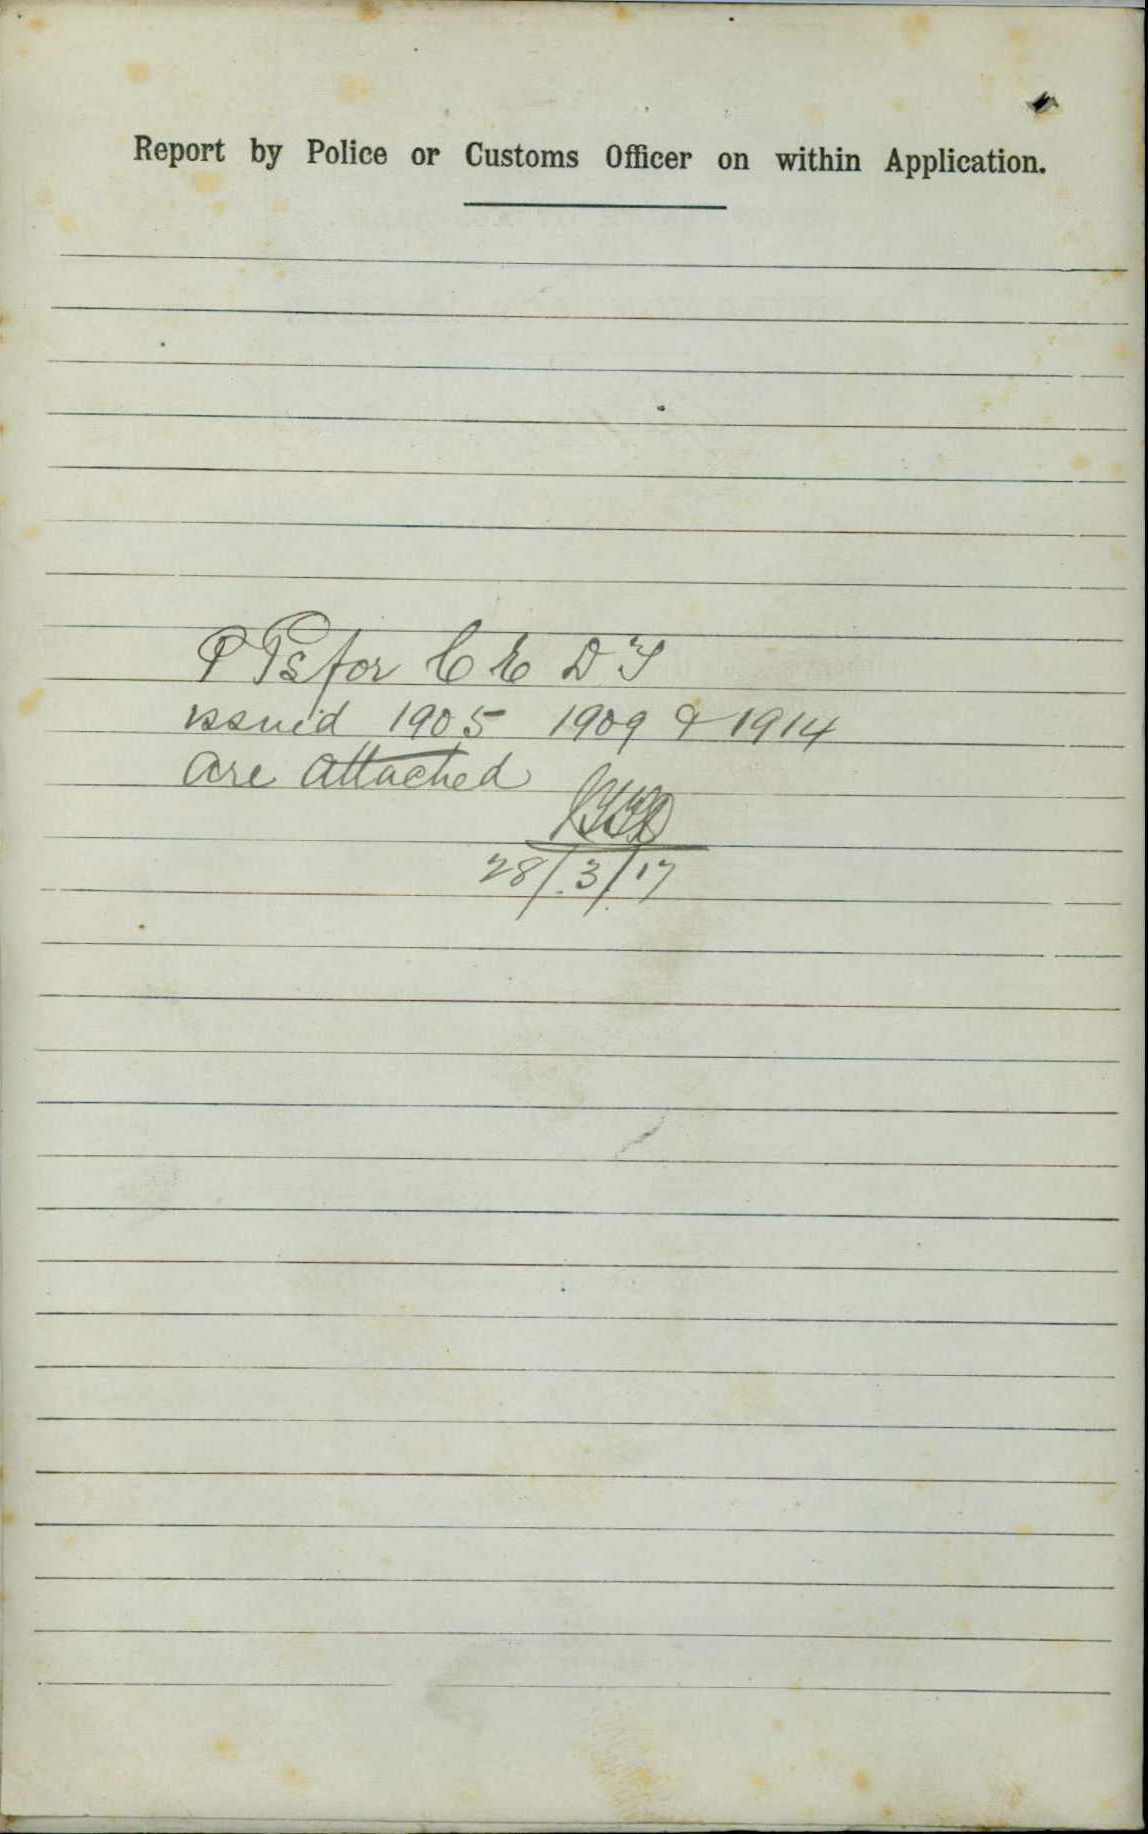 Report by Police or Customs Officer on within Application.
P Ps for C E D T
issued 1905 1909 & 1914
are attached
28/3/17